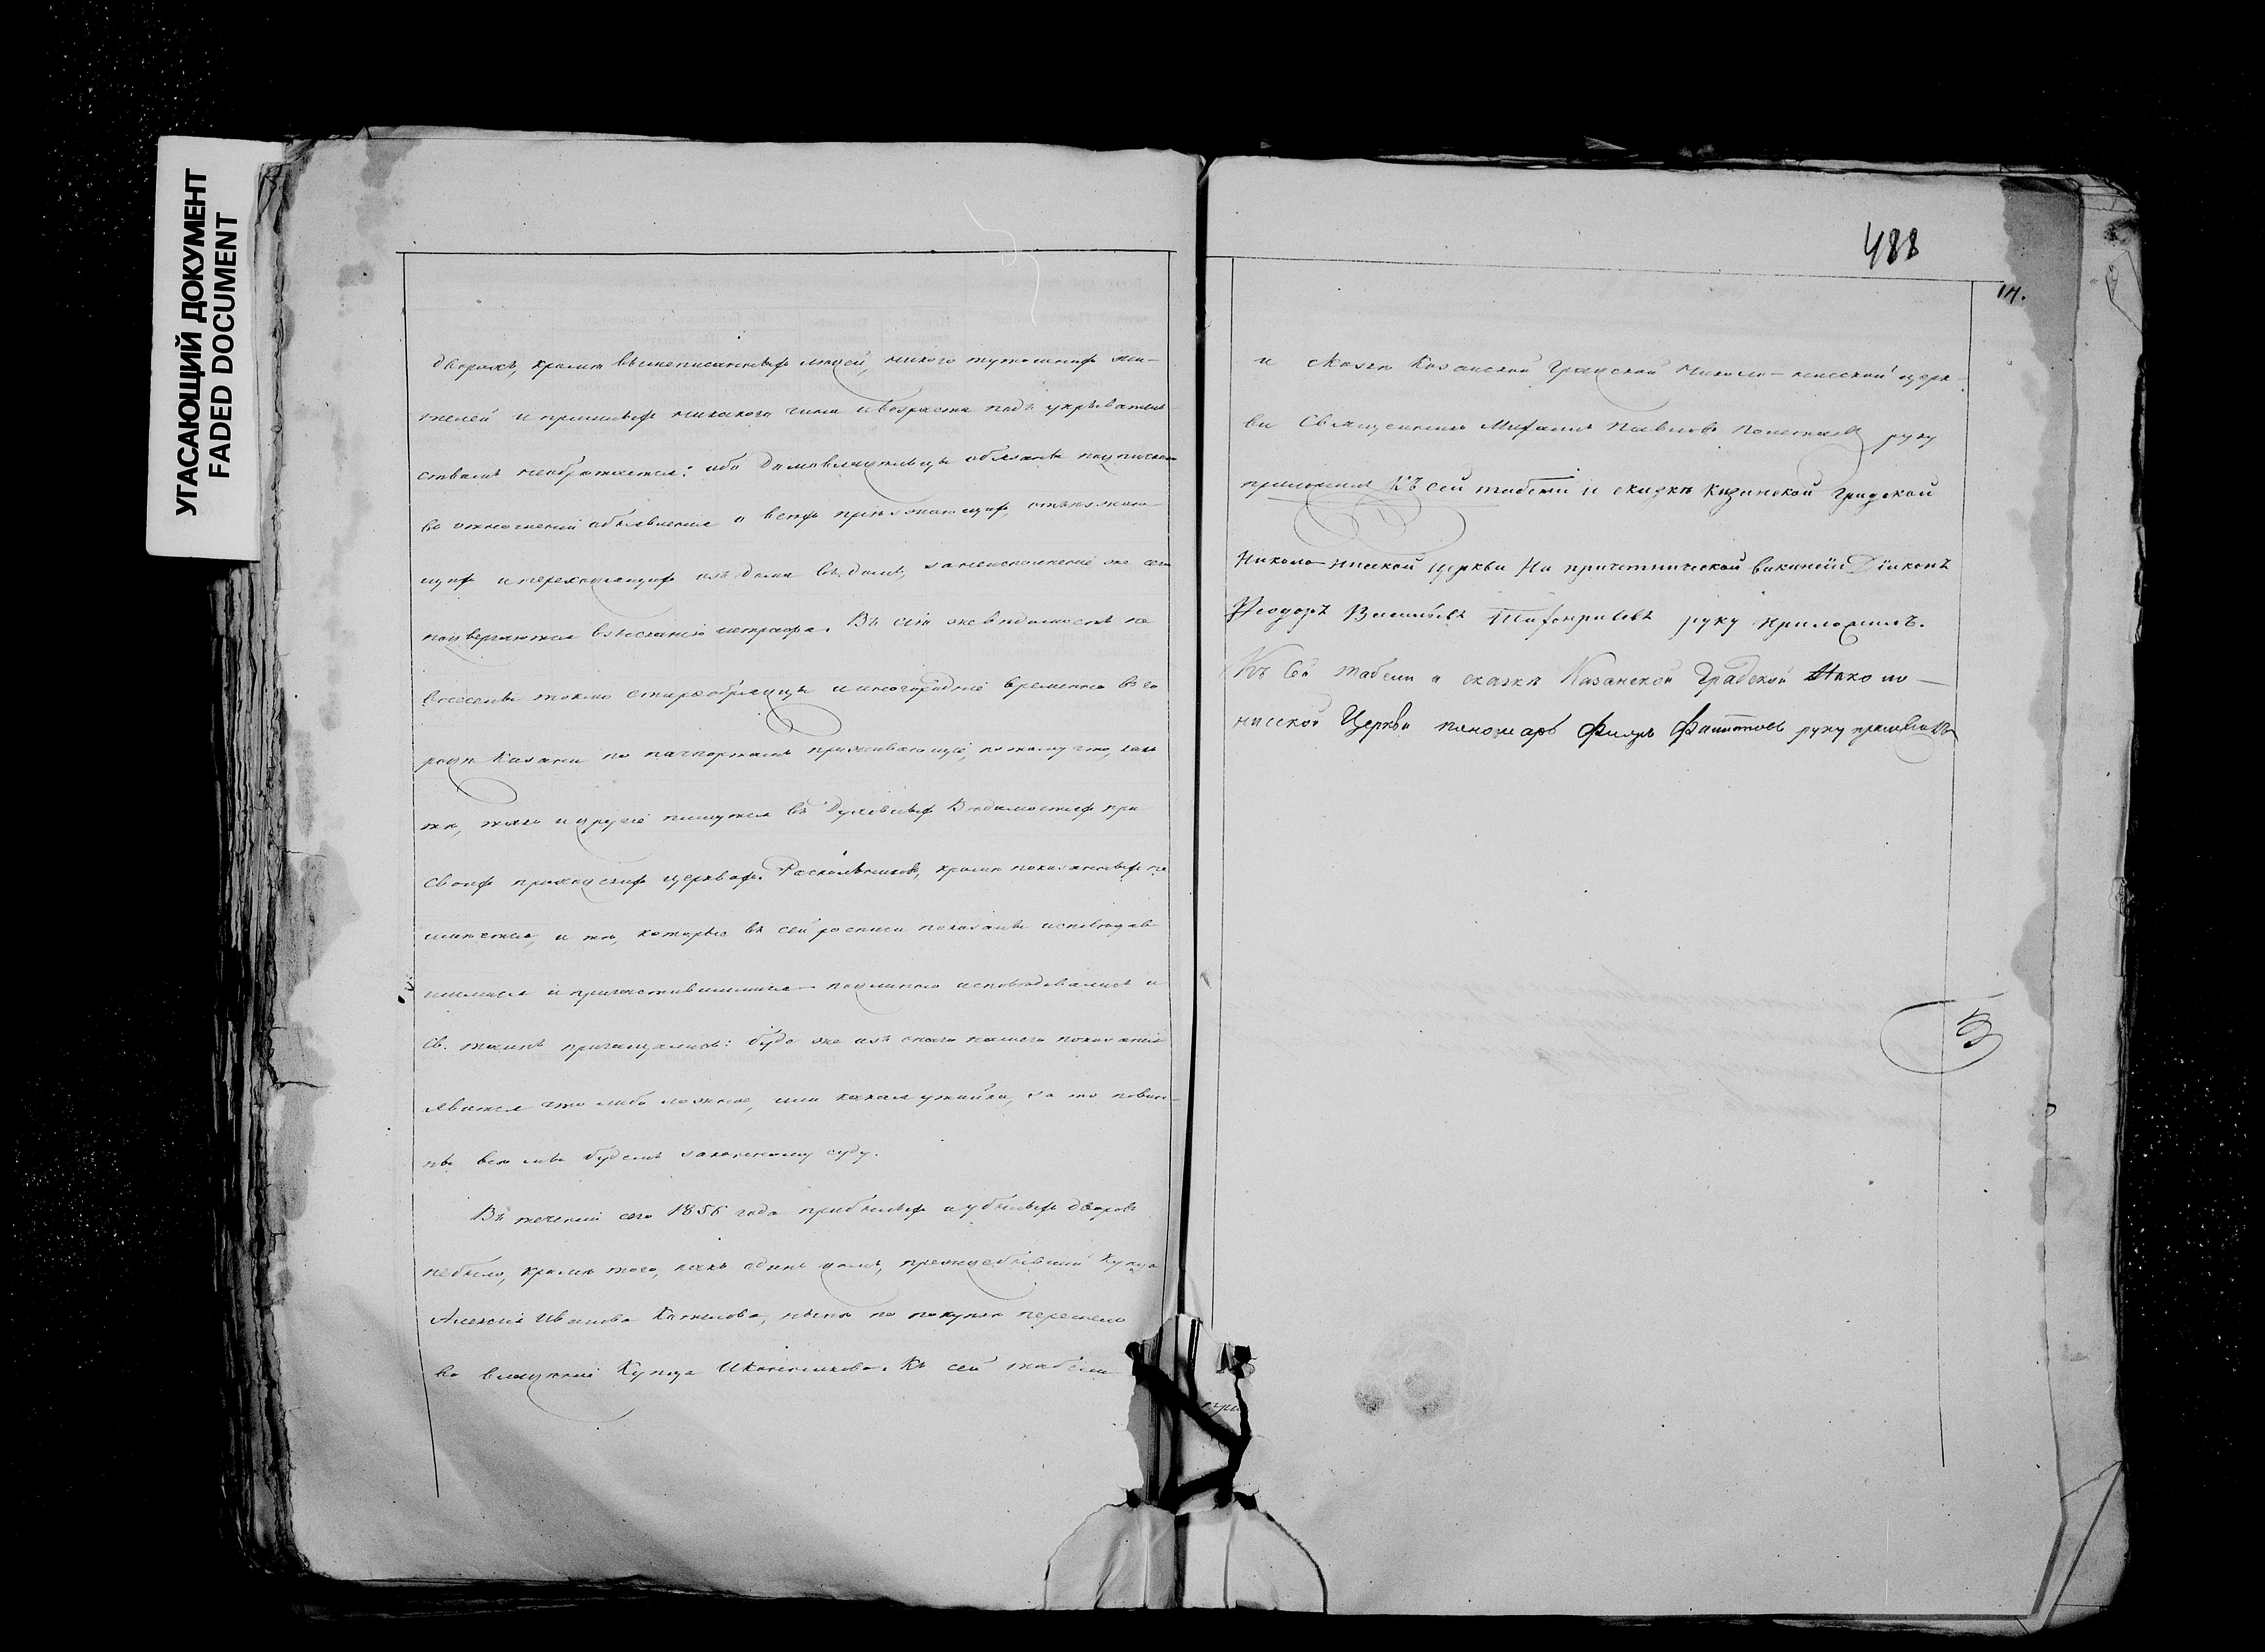 УГАСАЮЩИЙ ДОКУМЕНТ
FADED DOCUMENT
дворахъ, кромѣ вышеписанныхъ людей, никого тутошнихъ жи-
телей и пришлыхъ никакого чина и возраста подъ укрыватель-
ствомъ необрѣтается: ибо домовладѣльцы обязаны подпискою
въ отношеніи объявленія о всѣхъ пріѣзжающихъ, отъѣзжаю-
щихъ и переходящихъ изъ дома въ домъ, за неисполненіе же сего
подвергаются взысканію штрафа. Въ сію же вѣдомость не
внесены токмо старообрядцы и иногородніе временно въ го
родѣ Казани по пачпортамъ проживающіе, потому что, какъ
тѣ, такъ и другіе пишутся въ Духовныхъ Вѣдомостяхъ при
своихъ приходскихъ церквахъ. Раскольниковъ, кромѣ показанныхъ не
имѣется, и тѣ, которые въ сей росписи показаны исповѣдав
шимися и причастившимися подлинно исповѣдывались и
Св. таинъ причащались: буде же изъ онаго нашего показанія
явится что либо ложное, или какая утайка, за то повин-
ны всѣ мы будемъ законному суду.
Въ теченіи сего 1856 года прибылыхъ и убылыхъ дворовъ
небыло, кромѣ того, какъ одинъ домъ, преждебывшій Купца
Алексѣя Иванова нынѣ по покупкѣ перешелъ
во владѣніе Купца Иконникова. Къ сей табели
488
14.
и сказкѣ Казанской Градской Николо-нисской церк-
ви Священникъ Михаилъ Павловъ руку
приложилъ Къ сей табели и сказкѣ Казанской градской
Николо-нисской церкви На причетнической ваканціи Діаконъ
Ѳеодоръ Васильевъ руку приложилъ.
Къ сей табели и сказкѣ Казанской Градской Николо-
нисской Церкви пономарь руку приложилъ